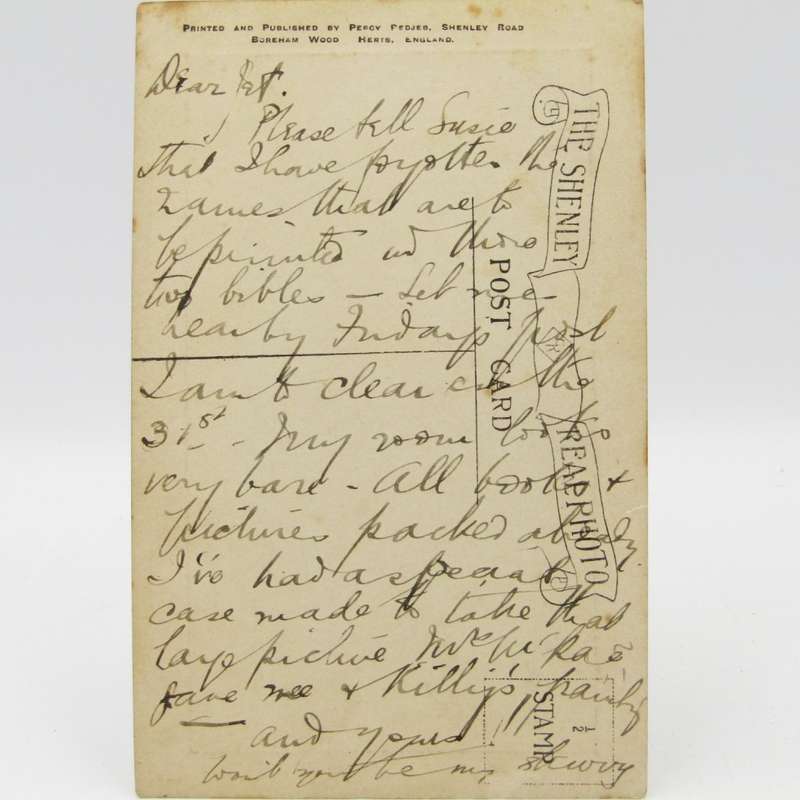 PRINTED AND PUBLISHED BY PERCY PEDJEB, SHENLEY ROAD
BOREHAM WOOD HERTS, ENGLAND.
Dear Pet.
Please tell Susie
that I have forgotten the
names that are to
be printed in those
two bibles — Let me
hear by Fridays post
I am to clear out the
31st - My room looks
very bare - All books &
pictures packed already.
I've had a special
case made to take that
large picture
gave me &
and yours
won't you be
THE SHENLEY
REAL PHOTO
POST CARD
STAMP
1/2